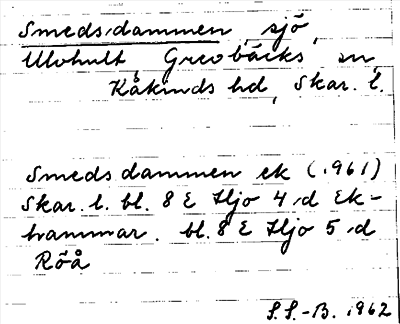 Smedsdammen, sjö,
Ulohult, Grevbäcks sn,
Kåkinds hd, Skar. l.
Smedsdammen ek (1961)
Skar. l. bl. 8 E Hjo 4 d Ek-
hammar. bl. 8 E Hjo 5 d
Röå
S.S.-B. 1962